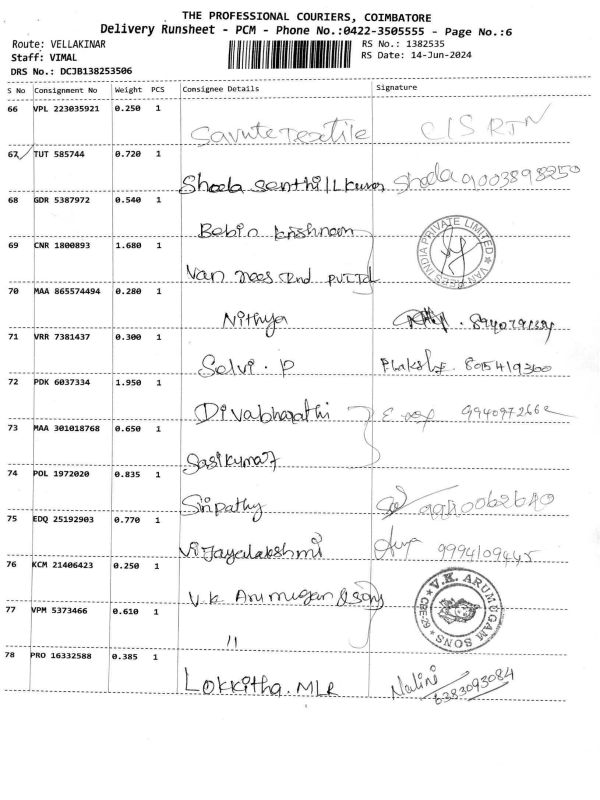 THE PROFESSIONAL COURIERS, COIMBATORE
Delivery Runsheet - PCM - Phone No.:0422-3505555 - Page No.:6
Route: VELLAKINAR RS No.: 1382535
Staff: VIMAL RS Date: 14-Jun-2024
DRS No.: DCJB138253506
S No Consignment No Weight PCS Consignee Details Signature
66 VPL 223035921 0.250 1
Savute Textile C/S RTN
67 TUT 585744 0.720 1
Sheela Senthil Kumar Sheela 9003898250
68 GDR 5387972 0.540 1
Bebin krishnan
69 CNR 1800893 1.680 1
Van rees Ind PVT Ltd
VAN REES INDIA PRIVATE LIMITED
70 MAA 865574494 0.280 1
Nithya
71 VRR 7381437 0.300 1
Selvi. P
72 PDK 6037334 1.950 1
Divabharathi 9940972662
73 MAA 301018768 0.650 1
Sasikumar
74 POL 1972020 0.835 1
Siripathy
75 EDQ 25192903 0.770 1
Vijayalakshmi 9994109445
76 KCM 21406423 0.250 1
V.K. Arumugam & sons
V.K. ARUMUGAM SONS CBE-29
77 VPM 5373466 0.610 1
11
78 PRO 16332588 0.385 1
Lokkitha. MLR Nalini
6383093084